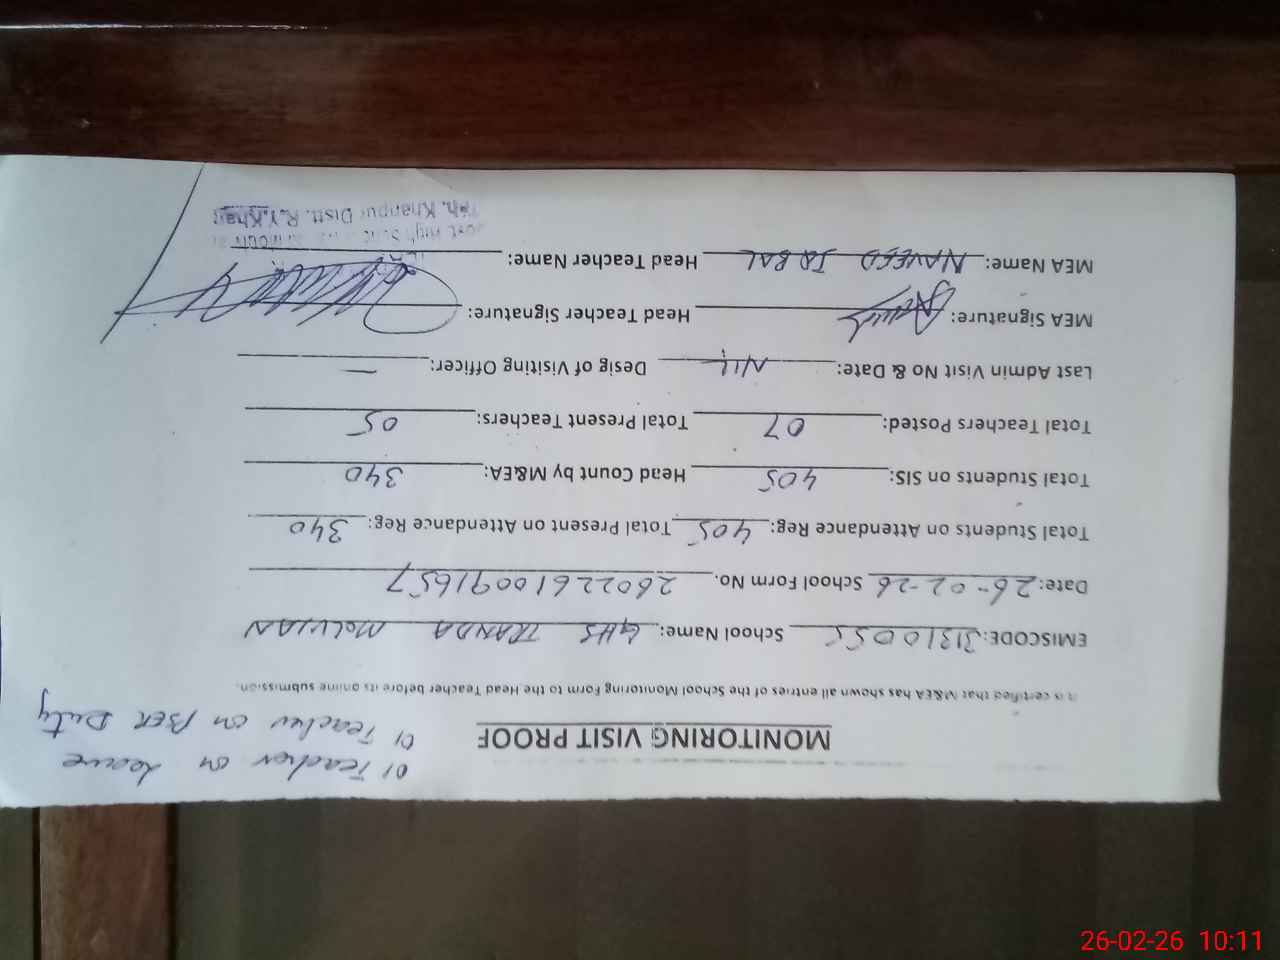 01 Teacher on Leave
01 Teacher on BER Duty
MONITORING VISIT PROOF
It is certified that M&EA has shown all entries of the School Monitoring Form to the Head Teacher before its online submission.
EMISCODE: 31310055 School Name: GHS TRANDA MOLVIAN
Date: 26-02-26 School Form No. 26022610091657
Total Students on Attendance Reg: 405 Total Present on Attendance Reg: 340
Total Students on SIS: 405 Head Count by M&EA: 340
Total Teachers Posted: 07 Total Present Teachers: 05
Last Admin Visit No & Date: Nil Desig of Visiting Officer: —
MEA Signature: Head Teacher Signature:
MEA Name: NAVEED IQBAL Head Teacher Name:
Govt. High School
Teh. Khanpur Distt. R.Y.Khan
26-02-26 10:11